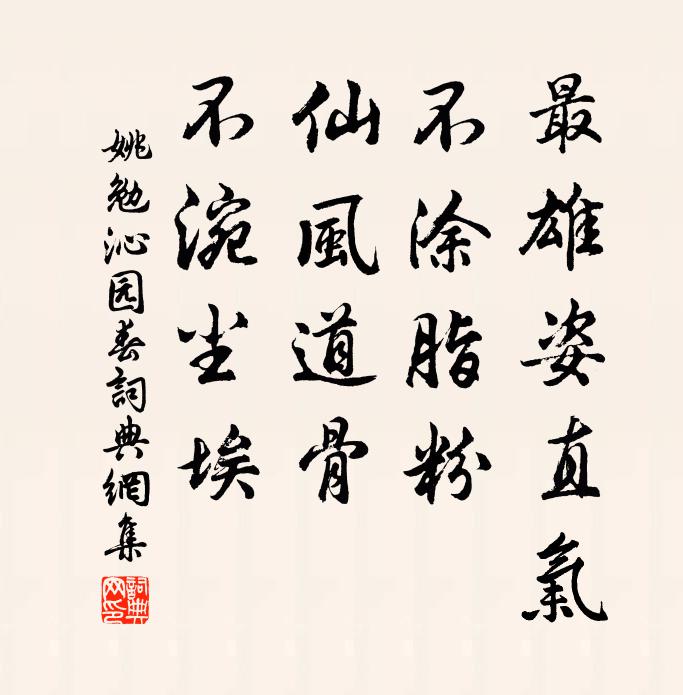 最雄姿直氣
不涂脂粉
仙風道骨
不涴尘埃
姚勉沁园春詞典網集
詞典网印